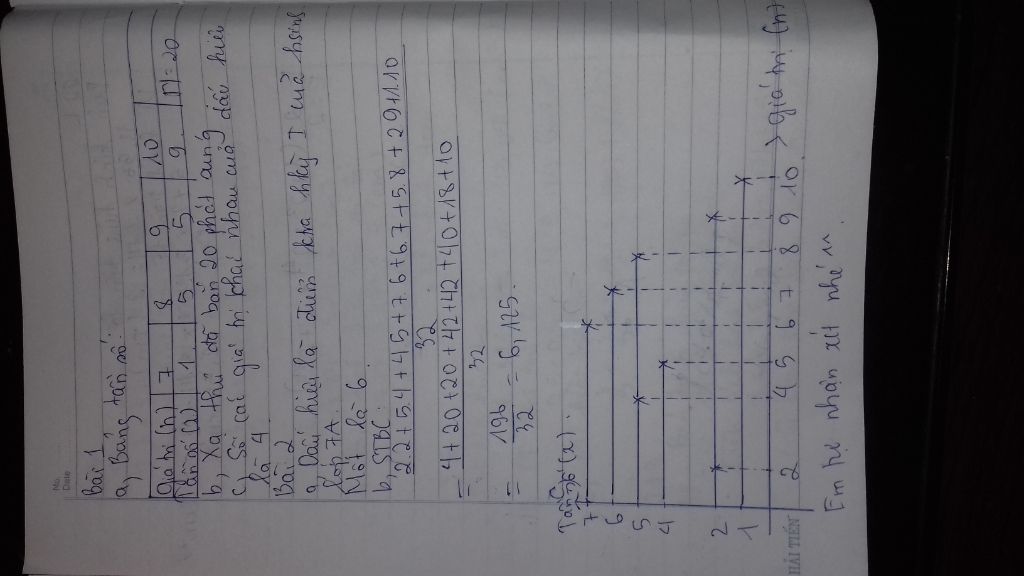 No.
Date
Bài 1
a, Bảng tần số:
Giá trị (n) 7 8 9 10
Tần số (x) 1 5 5 9 N=20
b, Xạ thủ đã bắn 20 phát súng
c, Số các giá trị khác nhau của dấu hiệu
là 4
Bài 2
a, Dấu hiệu là điểm của hkỳ I của
lớp 7A.
Mốt là 6.
b, STBC
2.2+5.4+4.5+7.6+6.7+5.8+2.9+1.10
32
= 4+20+20+42+42+40+18+10
32
= 196
32 = 6,125.
Tần số (x).
7
6
5
4
2
1
2 4 5 6 7 8 9 10 > giá trị (n)
Em tự nhận xét nhé ^^.
HẢI TIẾN